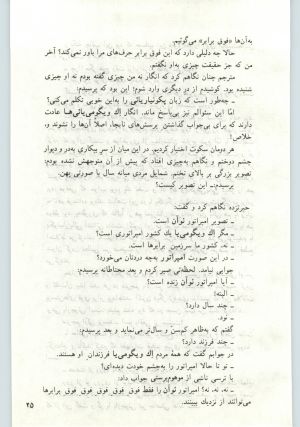 به‌آن‌ها «فوق برابر» می‌گوئیم.
حالا چه دلیلی دارد که این فوق برابر حرف‌های مرا باور نمی‌کند؟ آخر
من که جز حقیقت چیزی به‌او نگفتم.
مترجم چنان نگاهم کرد که انگار نه من چیزی گفته بودم نه او چیزی
شنیده بود. کوشیدم از در دیگری وارد شوم؛ این بود که پرسیدم:
ـ چه‌طور است که زبان پکونیاریائی را به‌این خوبی تکلم می‌کنی؟
امّا این سئوالم نیز بی‌پاسخ ماند. انگار اك ویگومی‌یائی‌ها عادت
دارند که برای بی‌جواب گذاشتن پرسش‌های نابجا، اصلاً آن‌ها را نشنوند و،
خلاص!
هر دومان سکوت اختیار کردیم. در این میان از سر بیکاری به‌در و دیوار
چشم دوختم و نگاهم به‌چیزی افتاد که پیش از آن متوجهش نشده بودم:
تصویر بزرگی بر بالای تختم. شمایل مردی میانه سال با صورتی پهن.
پرسیدم:ـ این تصویر کیست؟
حیرتزده نگاهم کرد و گفت:
ـ تصویر امپراتور توآن است.
ـ مگر اك ویگومی‌یا یك کشور امپراتوری است؟
ـ نه. کشور ما سرزمین برابرها است.
ـ در این صورت امپراتور به‌چه دردتان می‌خورد؟
جوابی نیامد. لحظه‌ئی صبر کردم و بعد محتاطانه پرسیدم:
ـ آیا امپراتور توآن زنده است؟
ـ البته!
ـ چند سال دارد؟
ـ نود.
گفتم که به‌ظاهر کم‌سن و سال‌تر می‌نماید و بعد پرسیدم:
ـ چند فرزند دارد؟
در جوابم گفت که همهٔ مردم اك ویگومی‌یا فرزندان او هستند.
ـ تو تا حالا امپراتور را به‌چشم خودت دیده‌ای؟
با ترسی ناشی از موهوم‌پرستی جواب داد:
ـ نه، نه، نه! امپراتور توآن را فقط فوق فوق فوق فوق فوق برابرها
می‌توانند از نزدیك ببینند.
۲۵